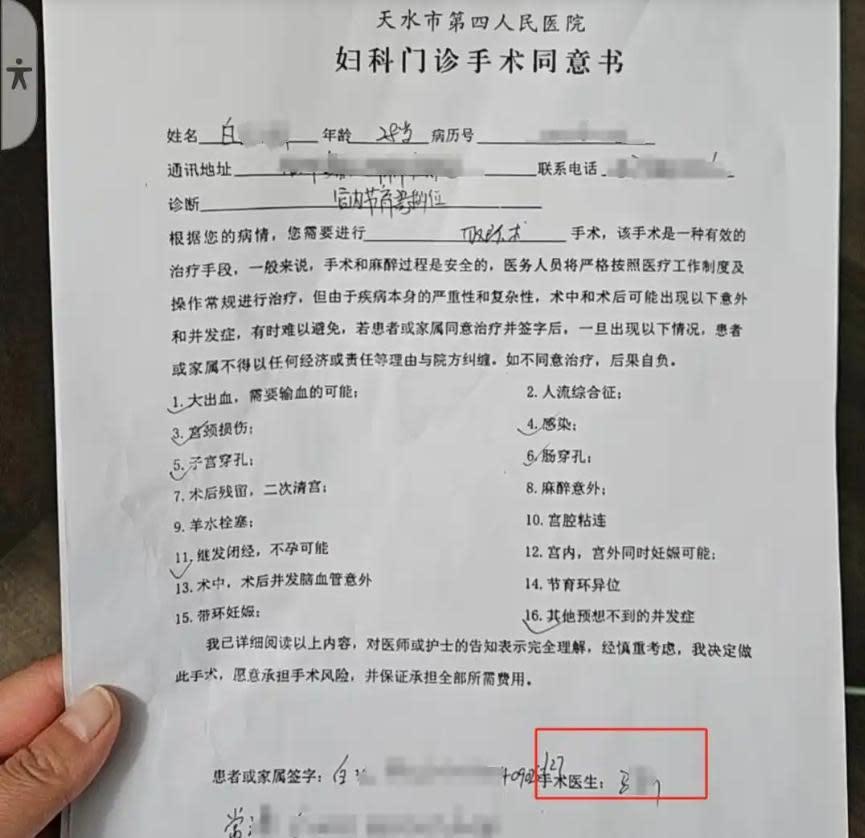 天水市第四人民医院
妇科门诊手术同意书
姓名 白 年龄 28岁 病历号
通讯地址 联系电话
诊断 宫内节育器的位
根据您的病情，您需要进行 取环术 手术，该手术是一种有效的
治疗手段，一般来说，手术和麻醉过程是安全的，医务人员将严格按照医疗工作制度及
操作常规进行治疗，但由于疾病本身的严重性和复杂性，术中和术后可能出现以下意外
和并发症，有时难以避免，若患者或家属同意治疗并签字后，一旦出现以下情况，患者
或家属不得以任何经济或责任等理由与院方纠缠，如不同意治疗，后果自负。
1. 大出血，需要输血的可能； 2. 人流综合征；
3. 宫颈损伤； 4. 感染；
5. 子宫穿孔； 6. 肠穿孔；
7. 术后残留，二次清宫； 8. 麻醉意外；
9. 羊水栓塞； 10. 宫腔粘连
11. 继发闭经，不孕可能 12. 宫内，宫外同时妊娠可能；
13. 术中，术后并发脑血管意外 14. 节育环异位
15. 带环妊娠； 16. 其他预想不到的并发症
我已详细阅读以上内容，对医师或护士的告知表示完全理解，经慎重考虑，我决定做
此手术，愿意承担手术风险，并保证承担全部所需费用。
患者或家属签字： 白 手术医生：
常